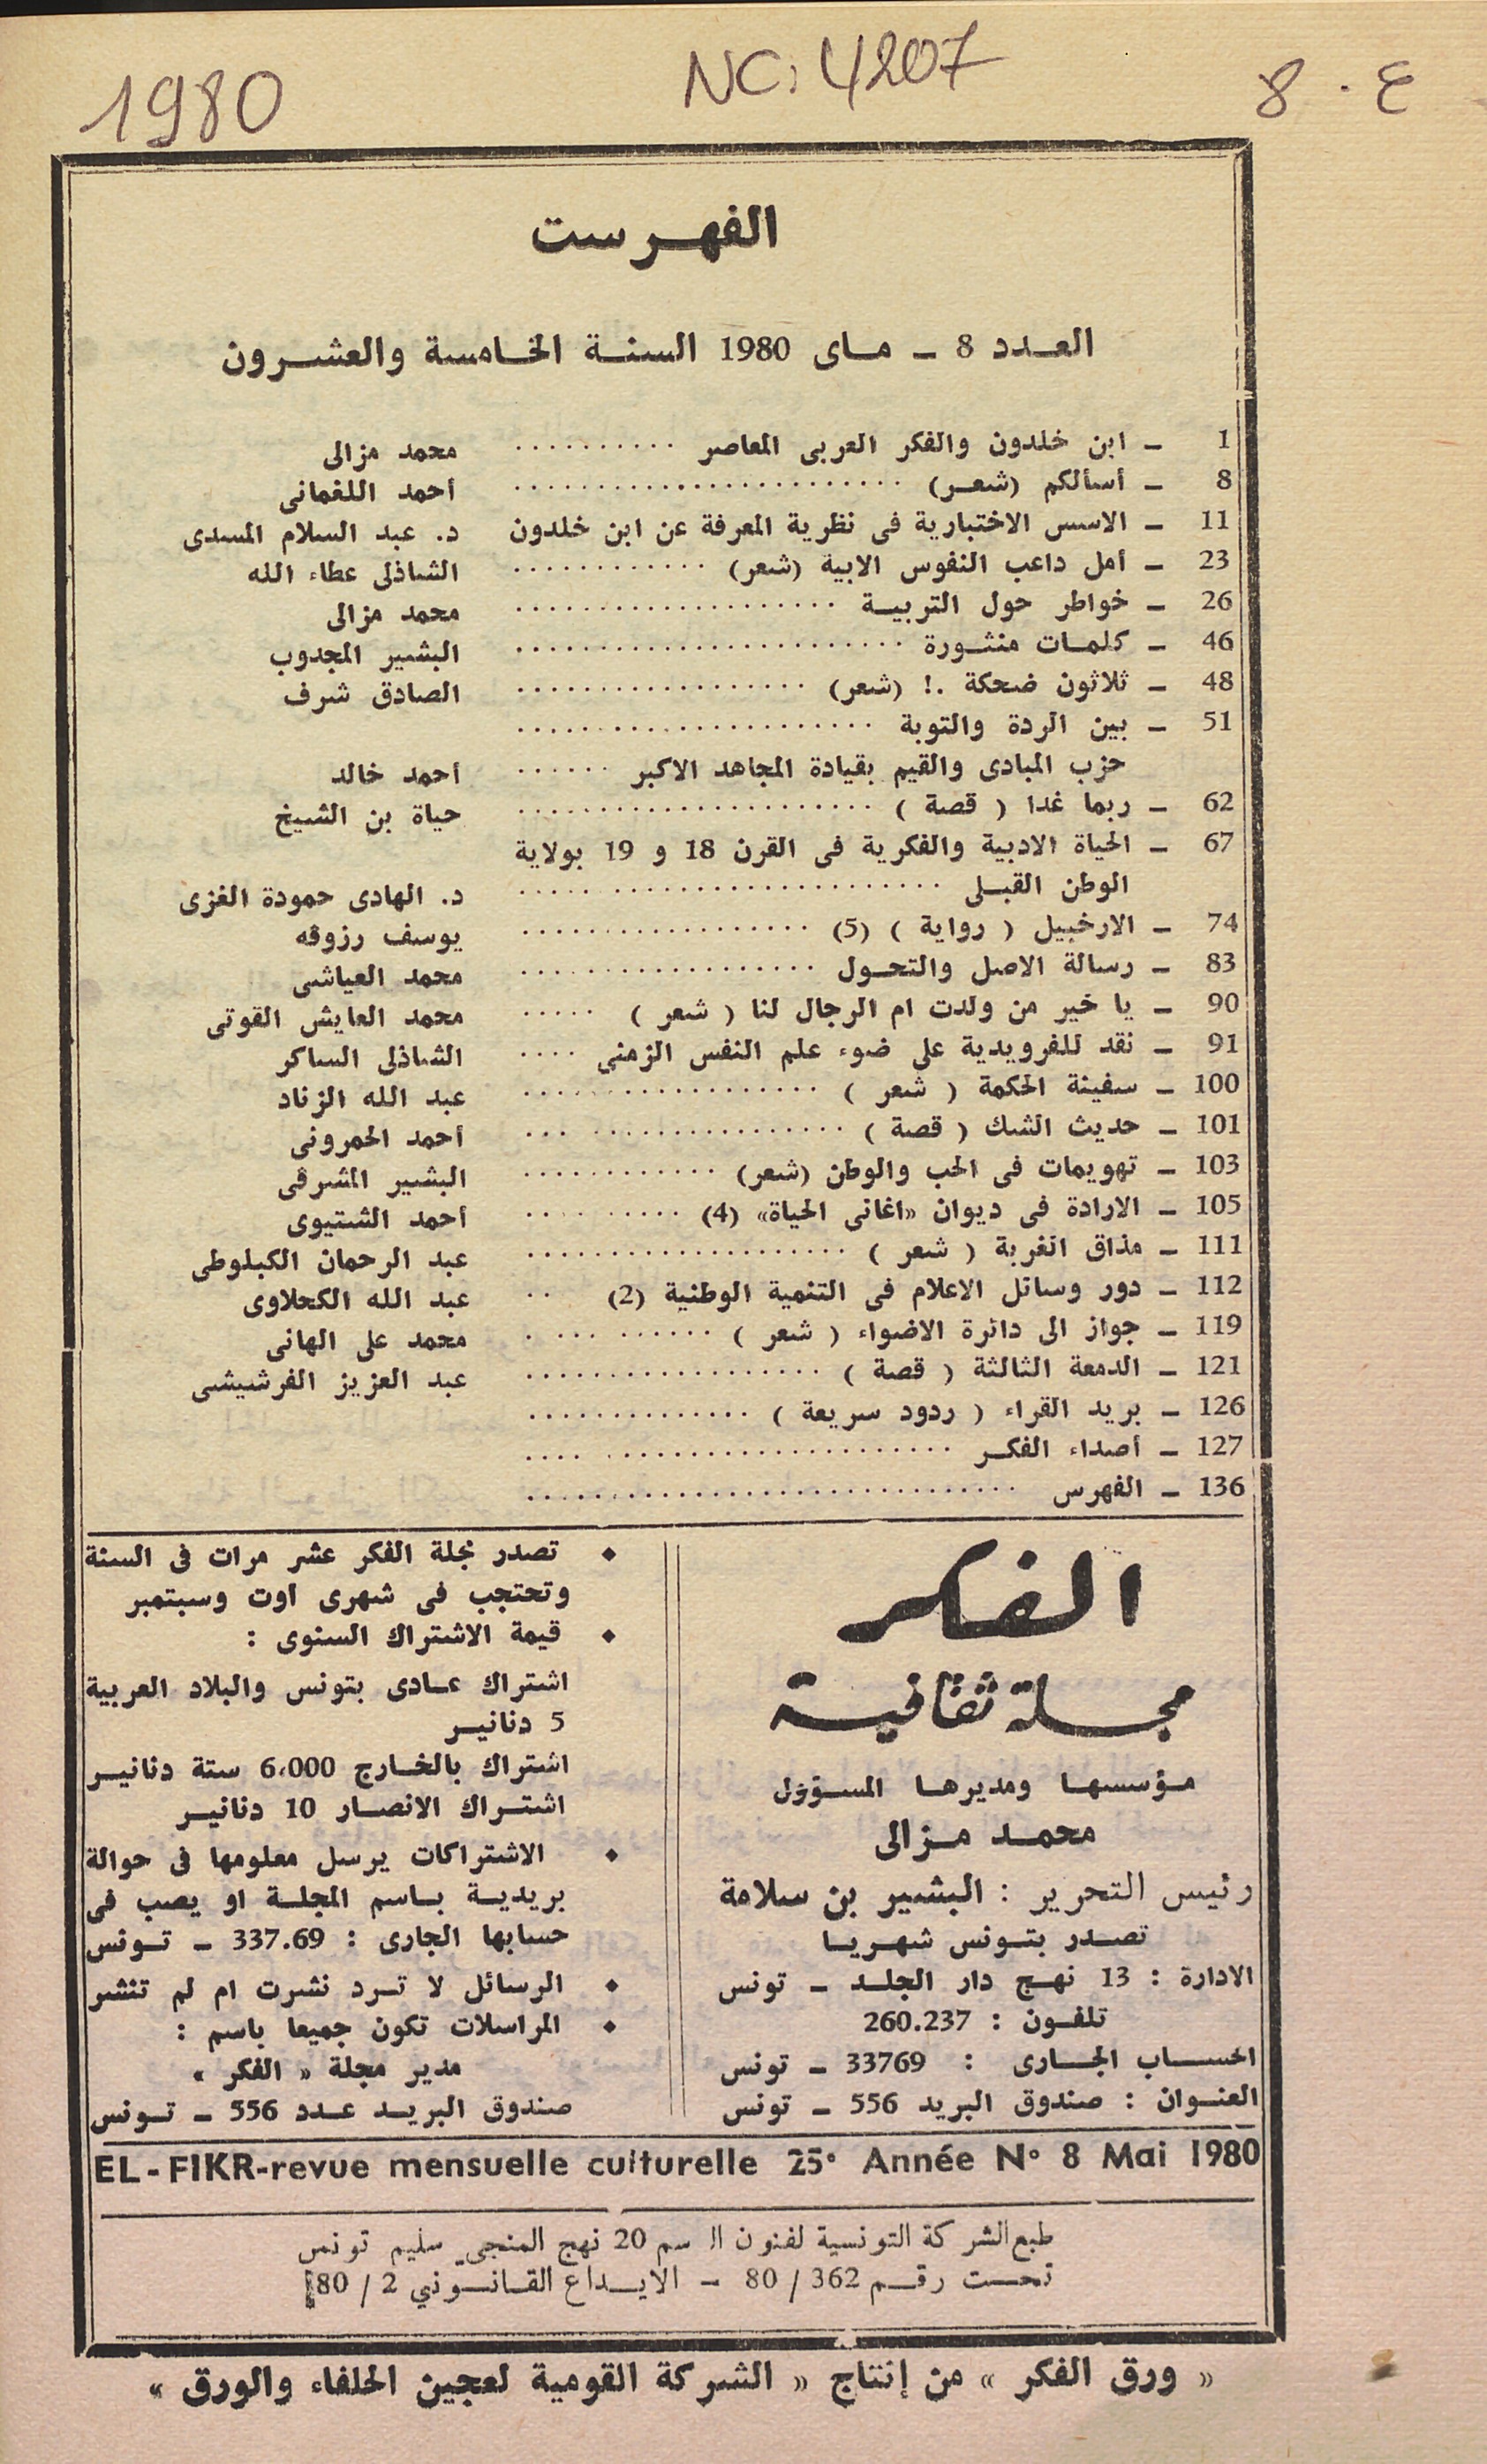 1980
NC: 4207
ع . 8
الفهرست
العدد 8 ـ ماى 1980 السنة الخامسة والعشرون
1 ـ ابن خلدون والفكر العربى المعاصر .......... محمد مزالى
8 ـ أسألكم (شعر) ........................ أحمد اللغمانى
11 ـ الاسس الاختبارية فى نظرية المعرفة عن ابن خلدون د. عبد السلام المسدى
23 ـ أمل داعب النفوس الابية (شعر) ............ الشاذلى عطاء الله
26 ـ خواطر حول التربية .................... محمد مزالى
46 ـ كلمات منثورة ........................ البشير المجدوب
48 ـ ثلاثون ضحكة .! (شعر) .................. الصادق شرف
51 ـ بين الردة والتوبة ......................
حزب المبادى والقيم بقيادة المجاهد الاكبر ...... أحمد خالد
62 ـ ربما غدا ( قصة ) ...................... حياة بن الشيخ
67 ـ الحياة الادبية والفكرية فى القرن 18 و 19 بولاية
الوطن القبلى .......................... د. الهادى حمودة الغزى
74 ـ الارخبيل ( رواية ) (5) .................. يوسف رزوقه
83 ـ رسالة الاصل والتحول .................. محمد العياشى
90 ـ يا خير من ولدت ام الرجال لنا ( شعر ) ..... محمد العايش القوتى
91 ـ نقد للفرويدية على ضوء علم النفس الزمنى .... الشاذلى الساكر
100 ـ سفينة الحكمة ( شعر ) .................. عبد الله الزناد
101 ـ حديث الشك ( قصة ) .................. أحمد الحمرونى
103 ـ تهويمات فى الحب والوطن (شعر) ............ البشير المشرقى
105 ـ الارادة فى ديوان «اغانى الحياة» (4) .......... أحمد الشتيوى
111 ـ مذاق الغربة ( شعر ) .................... عبد الرحمان الكبلوطى
112 ـ دور وسائل الاعلام فى التنمية الوطنية (2) .. عبد الله الكحلاوى
119 ـ جواز الى دائرة الاضواء ( شعر ) .......... محمد على الهانى
121 ـ الدمعة الثالثة ( قصة ) .................. عبد العزيز الفرشيشى
126 ـ بريد القراء ( ردود سريعة ) ..............
127 ـ أصداء الفكر ..........................
136 ـ الفهرس ..............................
الفكر
مجلة ثقافية
مؤسسها ومديرها المسؤول
محمد مزالى
رئيس التحرير : البشير بن سلامة
تصدر بتونس شهريا
الادارة : 13 نهج دار الجلد ـ تونس
تلفون : 260.237
الحساب الجارى : 33769 ـ تونس
العنوان : صندوق البريد 556 ـ تونس
♦ تصدر مجلة الفكر عشر مرات فى السنة
وتحتجب فى شهرى اوت وسبتمبر
♦ قيمة الاشتراك السنوى :
اشتراك عادى بتونس والبلاد العربية
5 دنانير
اشتراك بالخارج 6،000 ستة دنانير
اشتراك الانصار 10 دنانير
♦ الاشتراكات يرسل معلومها فى حوالة
بريدية باسم المجلة او يصب فى
حسابها الجارى : 337.69 ـ تونس
♦ الرسائل لا ترد نشرت ام لم تنشر
♦ المراسلات تكون جميعا باسم :
مدير مجلة « الفكر »
صندوق البريد عدد 556 ـ تونس
EL-FIKR-revue mensuelle culturelle 25e Année N° 8 Mai 1980
طبع الشركة التونسية لفنون الرسم 20 نهج المنجي سليم تونس
تحت رقم 362 / 80 ـ الايداع القانوني 2 / 80
« ورق الفكر » من إنتاج « الشركة القومية لعجين الحلفاء والورق »